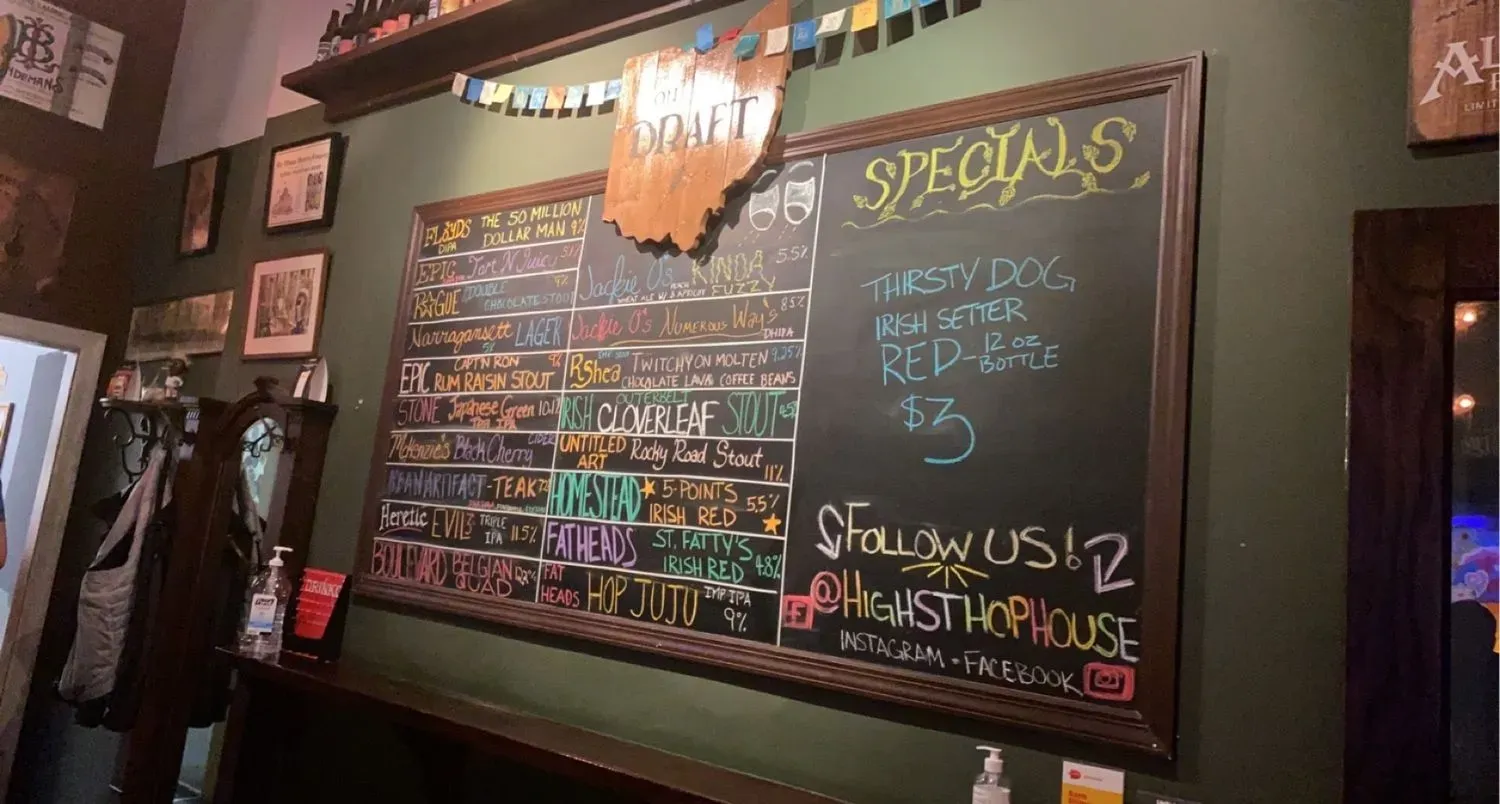 DRAFT
SPECIALS
FLOYDS THE 50 MILLION
DIPA DOLLAR MAN 9%
EPIC Tart N Juicy
ROGUE DOUBLE 9%
CHOCOLATE STOUT
Narragansett LAGER
5%
EPIC CAPT'N RON 9%
RUM RAISIN STOUT
STONE Japanese Green
IPA
McKenzie's Black Cherry CIDER
URBAN ARTIFACT - TEAK
Heretic EVIL TRIPLE 11.5%
IPA
BOULEVARD BELGIAN
QUAD
Jackie O's KINDA 5.5%
FUZZY
WHEAT ALE W/ APRICOT
Jackie O's NUMEROUS WAYS 8.5%
DHIPA
RShea TWITCHY ON MOLTEN 9.25%
CHOCOLATE LAVA COFFEE BEANS
OUTERBELT
IRISH CLOVERLEAF STOUT
UNTITLED Rocky Road Stout
ART 11%
HOMESTEAD 5-POINTS 5.5%
IRISH RED
FATHEADS ST. FATTY'S
IRISH RED 4.8%
FAT HOP JUJU IMP IPA
HEADS 9%
THIRSTY DOG
IRISH SETTER
RED - 12 oz
BOTTLE
$3
FOLLOW US!
@HIGHSTHOPHOUSE
INSTAGRAM - FACEBOOK
DRINKS